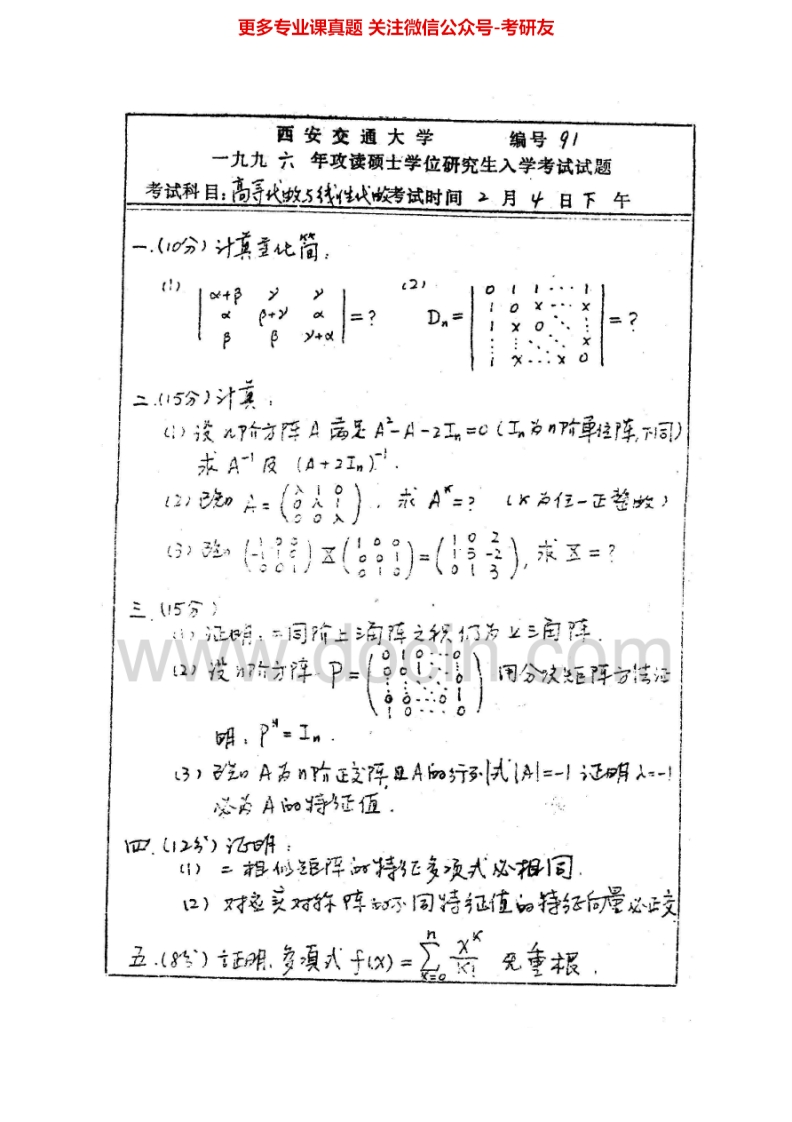 更多专业课真题 关注微信公众号-考研友
西安交通大学 编号 91
一九九六年攻读硕士学位研究生入学考试试题
考试科目：高等代数与线性代数 考试时间 2月4日下午
一.(10分)计算并化简：
(1) | α+β γ γ | (2) | 0 1 1 ⋯ 1 |
| α β+γ α | =? Dn= | 1 0 x ⋯ x | =?
| β β γ+α | | 1 x 0 ⋱ ⋮ |
| ⋮ ⋮ ⋱ ⋱ x |
| 1 x ⋯ x 0 |
二.(15分)计算：
(1) 设n阶方阵A满足A²-A-2In=0 (In为n阶单位阵,下同)
求A⁻¹及(A+2In)⁻¹.
(2) 已知 A=(λ 1 0; 0 λ 1; 0 0 λ), 求 Aᴷ=? (K为任一正整数)
(3) 已知 X(1 0 0; 0 0 1; 0 1 0)=(1 0 2; 1 5 -2; 0 1 3), 求X=?
三.(15分)
(1) 证明：二同阶上三角阵之积仍为上三角阵.
(2) 设n阶方阵 P=(0 1 0 ⋯ 0; 0 0 1 ⋯ 0; ⋮ ⋮ ⋱ ⋱ ⋮; 0 0 ⋯ 0 1; 1 0 ⋯ 0) 用分块矩阵方法证
明：Pⁿ=In.
(3) 已知A为n阶正交阵,且A的行列式|A|=-1 证明λ=-1
必为A的特征值.
四.(12分)证明：
(1) 二相似矩阵的特征多项式必相同.
(2) 对应实对称阵的不同特征值的特征向量必正交
五.(8分)证明,多项式 f(x)=∑ₖ₌₀ⁿ xᴷ/K! 无重根.
www.docin.com